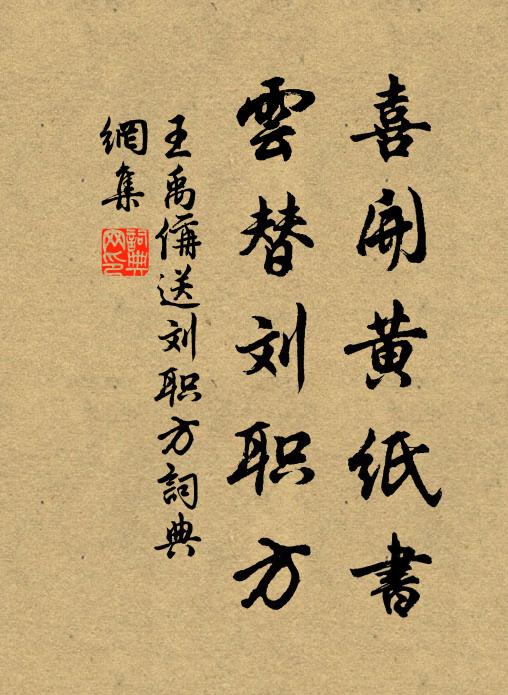 喜開黄紙書
雲替刘职方
王禹偁送刘职方詞典
網集
詞典
網印